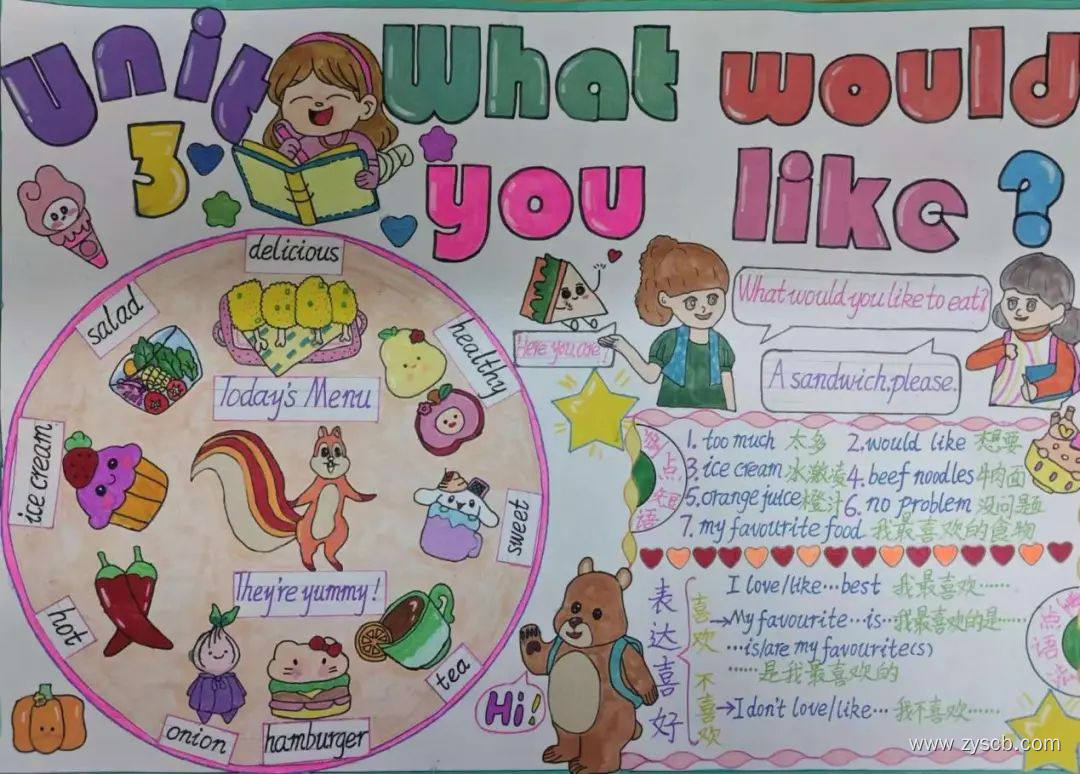 Unit What would
3 you like ?
delicious
salad
healthy
Today's Menu
ice cream
sweet
They're yummy!
hot
tea
onion
hamburger
Here you are!
What would you like to eat?
A sandwich,please.
Hi!
重点短语
1. too much 太多 2.would like 想要
3. ice cream 冰激凌 4. beef noodles 牛肉面
5.orange juice 橙汁 6. no problem 没问题
7. my favourite food 我最喜欢的食物
表达喜好
喜欢
I love/like…best 我最喜欢……
→My favourite…is…我最喜欢的是……
…is/are my favourite(s)
……是我最喜欢的
不喜欢
→I don't love/like… 我不喜欢……
www.zyscb.com